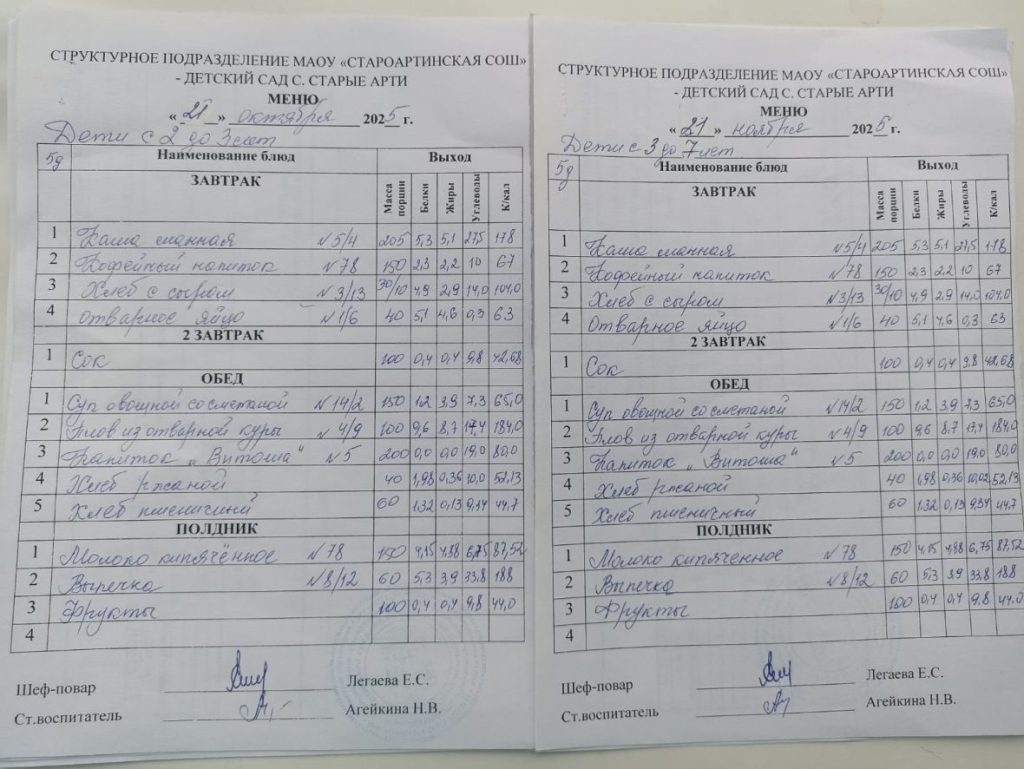 СТРУКТУРНОЕ ПОДРАЗДЕЛЕНИЕ МАОУ «СТАРОАРТИНСКАЯ СОШ»
- ДЕТСКИЙ САД С. СТАРЫЕ АРТИ
МЕНЮ
« 21 » октября 2025 г.
Дети с 2 до 3 лет
5д Наименование блюд Выход
ЗАВТРАК Масса порции Белки Жиры Углеводы К/кал
1 Каша манная №5/4 205 5,3 5,1 27,5 178
2 Кофейный напиток №78 150 2,3 2,2 10 67
3 Хлеб с сыром №3/13 30/10 4,9 2,9 14,0 104,0
4 Отварное яйцо №1/6 40 5,1 4,6 0,3 63
2 ЗАВТРАК
1 Сок 100 0,4 0,4 9,8 42,68
ОБЕД
1 Суп овощной со сметаной №14/2 150 1,2 3,9 7,3 65,0
2 Плов из отварной куры №4/9 100 9,6 8,7 17,4 184,0
3 Напиток „Витоша" №5 200 0,0 0,0 19,0 80,0
4 Хлеб ржаной 40 1,98 0,36 10,0 52,13
5 Хлеб пшеничный 60 1,32 0,13 9,34 44,7
ПОЛДНИК
1 Молоко кипячённое №78 150 4,15 4,88 6,75 87,52
2 Выпечка №8/12 60 5,3 3,9 33,8 188
3 Фрукты 100 0,4 0,4 9,8 44,0
4
Шеф-повар Легаева Е.С.
Ст.воспитатель Агейкина Н.В.
СТРУКТУРНОЕ ПОДРАЗДЕЛЕНИЕ МАОУ «СТАРОАРТИНСКАЯ СОШ»
- ДЕТСКИЙ САД С. СТАРЫЕ АРТИ
МЕНЮ
« 21 » ноября 2025 г.
Дети с 3 до 7 лет
5д Наименование блюд Выход
ЗАВТРАК Масса порции Белки Жиры Углеводы К/кал
1 Каша манная №5/4 205 5,3 5,1 27,5 178
2 Кофейный напиток №78 150 2,3 2,2 10 67
3 Хлеб с сыром №3/13 30/10 4,9 2,9 14,0 104,0
4 Отварное яйцо №1/6 40 5,1 4,6 0,3 63
2 ЗАВТРАК
1 Сок 100 0,4 0,4 9,8 42,68
ОБЕД
1 Суп овощной со сметаной №14/2 150 1,2 3,9 7,3 65,0
2 Плов из отварной куры №4/9 100 9,6 8,7 17,4 184,0
3 Напиток „Витоша" №5 200 0,0 0,0 19,0 80,0
4 Хлеб ржаной 40 1,98 0,36 10,02 52,13
5 Хлеб пшеничный 60 1,32 0,13 9,34 44,7
ПОЛДНИК
1 Молоко кипяченное №78 150 4,15 4,88 6,75 87,52
2 Выпечка №8/12 60 5,3 3,9 33,8 188
3 Фрукты 100 0,4 0,4 9,8 44,0
4
Шеф-повар Легаева Е.С.
Ст.воспитатель Агейкина Н.В.